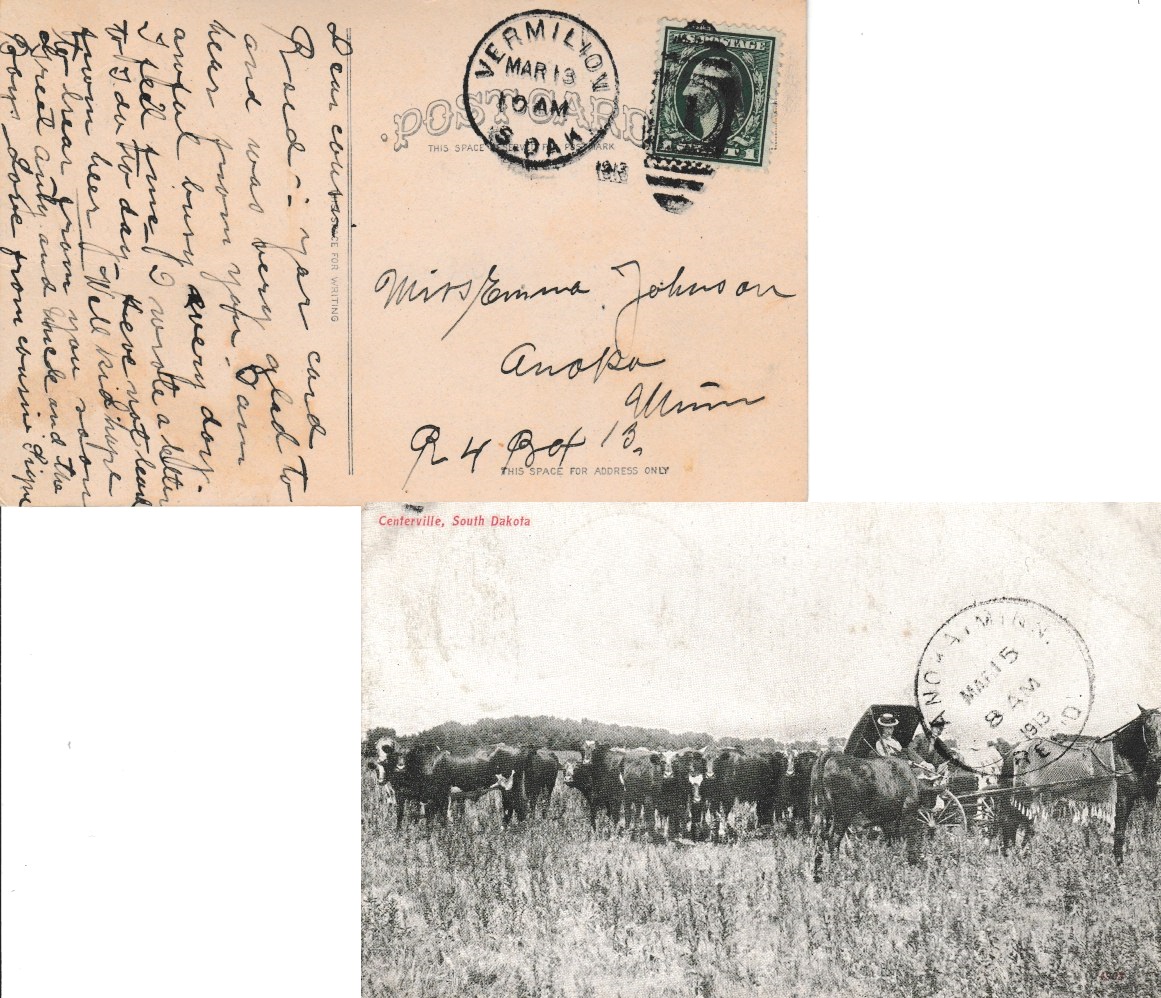 Dear cousin
Rec'd - your card
and was very glad to
hear from you - I am
awful busy every day -
I feel fine I wrote a letter
to I do to day - Heve not lead
town hear Well kid hope
to hear from you soon
Greet anty and Uncle and the
Boys Love from cousin
SPACE FOR WRITING
POST CARD
THIS SPACE RESERVED FOR POSTMARK
VERMILION
MAR 13
10 AM
S. DAK.
1913
1
U.S. POSTAGE
1
Miss Emma Johnson
Anoka
Minn
R 4 Box 13.
THIS SPACE FOR ADDRESS ONLY
Centerville, South Dakota
ANOKA, MINN.
MAR 15
8 AM
1913
REC'D.